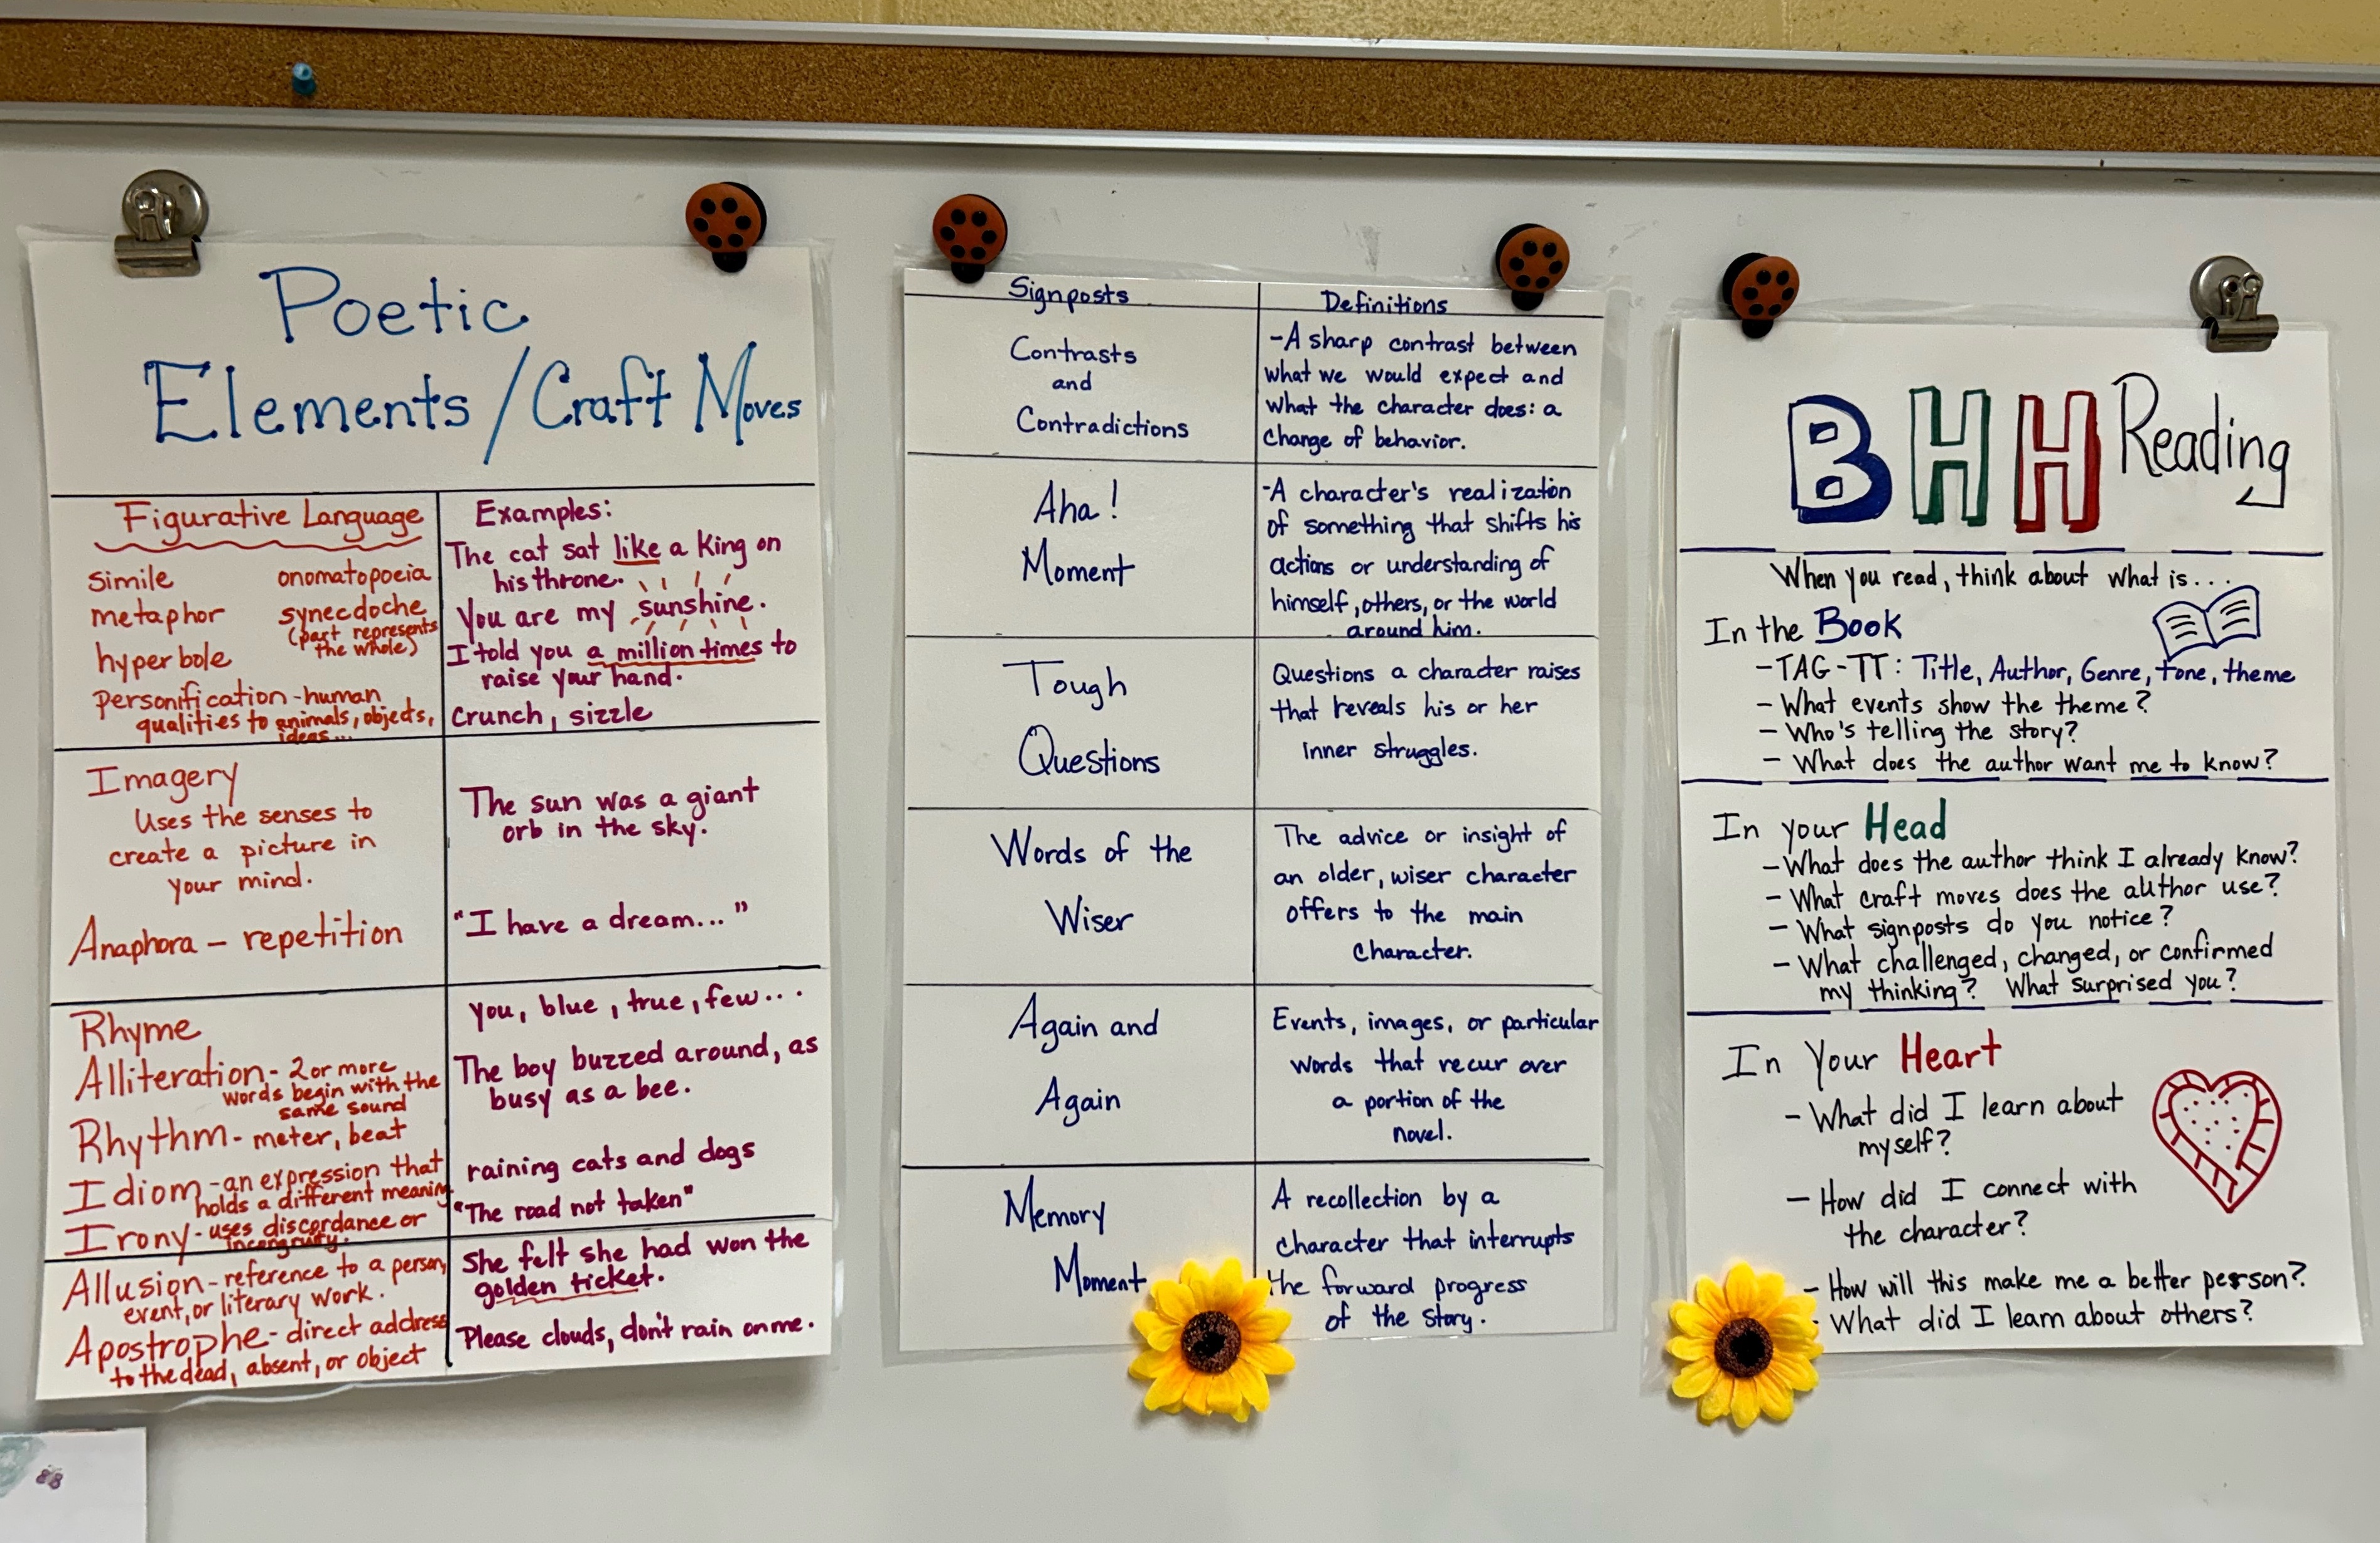 Poetic
Elements/Craft Moves
Figurative Language
simile onomatopoeia
metaphor synecdoche
(part represents
the whole)
hyperbole
personification - human
qualities to animals, objects,
ideas...
Examples:
The cat sat like a King on
his throne.
You are my sunshine.
I told you a million times to
raise your hand.
Crunch, sizzle
Imagery
Uses the senses to
create a picture in
your mind.
Anaphora - repetition
The sun was a giant
orb in the sky.
"I have a dream..."
Rhyme
Alliteration - 2 or more
words begin with the
same sound
Rhythm - meter, beat
Idiom - an expression that
holds a different meaning.
Irony - uses discordance or
incongruity.
you, blue, true, few...
The boy buzzed around, as
busy as a bee.
raining cats and dogs
"The road not taken"
Allusion - reference to a person,
event, or literary work.
Apostrophe - direct address
to the dead, absent, or object
She felt she had won the
golden ticket.
Please clouds, don't rain on me.
Signposts
Definitions
Contrasts
and
Contradictions
-A sharp contrast between
what we would expect and
what the character does: a
change of behavior.
Aha!
Moment
-A character's realization
of something that shifts his
actions or understanding of
himself, others, or the world
around him.
Tough
Questions
Questions a character raises
that reveals his or her
inner struggles.
Words of the
Wiser
The advice or insight of
an older, wiser character
offers to the main
character.
Again and
Again
Events, images, or particular
words that recur over
a portion of the
novel.
Memory
Moment
A recollection by a
character that interrupts
the forward progress
of the story.
BHH Reading
When you read, think about what is...
In the Book
-TAG-TT: Title, Author, Genre, tone, theme
- What events show the theme?
- Who's telling the story?
- What does the author want me to know?
In your Head
- What does the author think I already know?
- What craft moves does the author use?
- What signposts do you notice?
- What challenged, changed, or confirmed
my thinking? What surprised you?
In Your Heart
- What did I learn about
myself?
- How did I connect with
the character?
- How will this make me a better person?
- What did I learn about others?